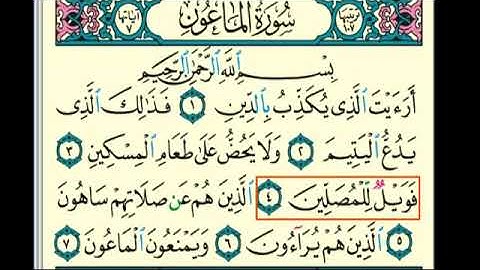 آياتها ٧ سُورَةُ الْمَاعُونِ ترتيبها ١٠٧
بِسْمِ اللَّهِ الرَّحْمَٰنِ الرَّحِيمِ
أَرَءَيْتَ ٱلَّذِى يُكَذِّبُ بِٱلدِّينِ ١ فَذَٰلِكَ ٱلَّذِى
يَدُعُّ ٱلْيَتِيمَ ٢ وَلَا يَحُضُّ عَلَىٰ طَعَامِ ٱلْمِسْكِينِ ٣
فَوَيْلٌ لِّلْمُصَلِّينَ ٤ ٱلَّذِينَ هُمْ عَن صَلَاتِهِمْ سَاهُونَ
٥ ٱلَّذِينَ هُمْ يُرَآءُونَ ٦ وَيَمْنَعُونَ ٱلْمَاعُونَ ٧